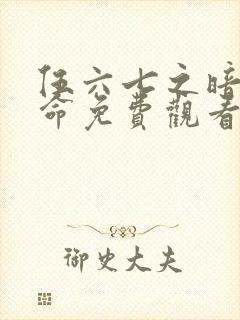 伍六七之暗
命免費觀看
御史大夫